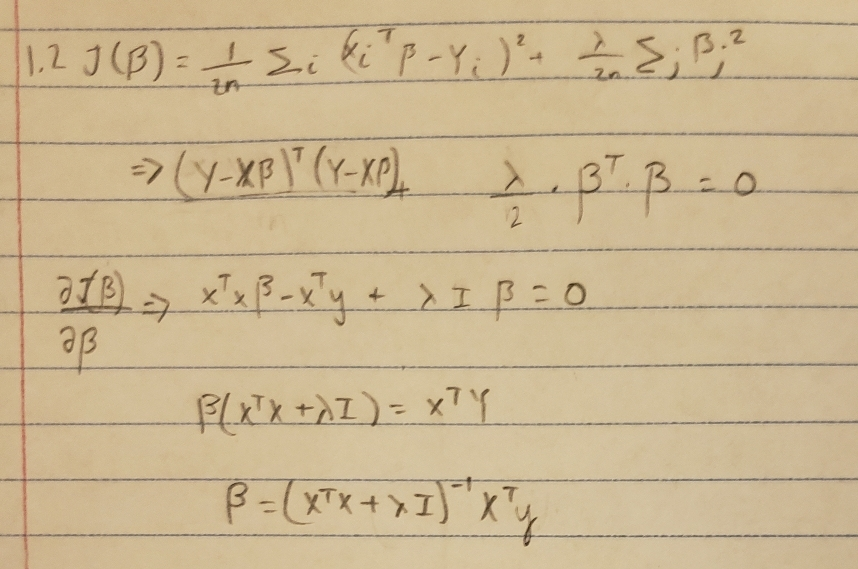 1.2 J(β) = 1/2n Σi (xiᵀβ - Yi)² + λ/2n Σj βj²
⇒ (Y-Xβ)ᵀ(Y-Xβ)+ λ/2 · βᵀ · β = 0
∂J(β)/∂β ⇒ xᵀxβ - xᵀy + λ I β = 0
β(xᵀx + λI) = xᵀY
β = (xᵀx + λI)⁻¹ xᵀy